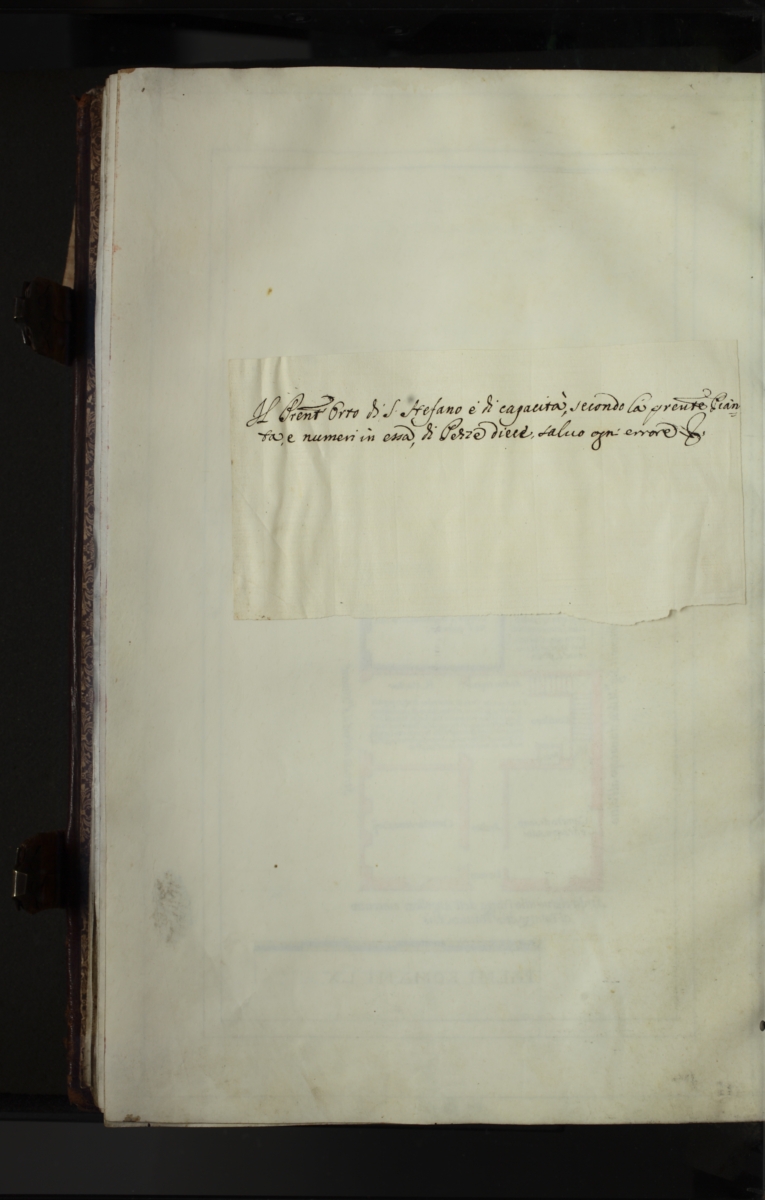 Il Prent͞e Orto di S. Stefano è di capacità, secondo la prent͞e Pian-
ta, e numeri in essa, di Pezze dieci, salvo ogni errore